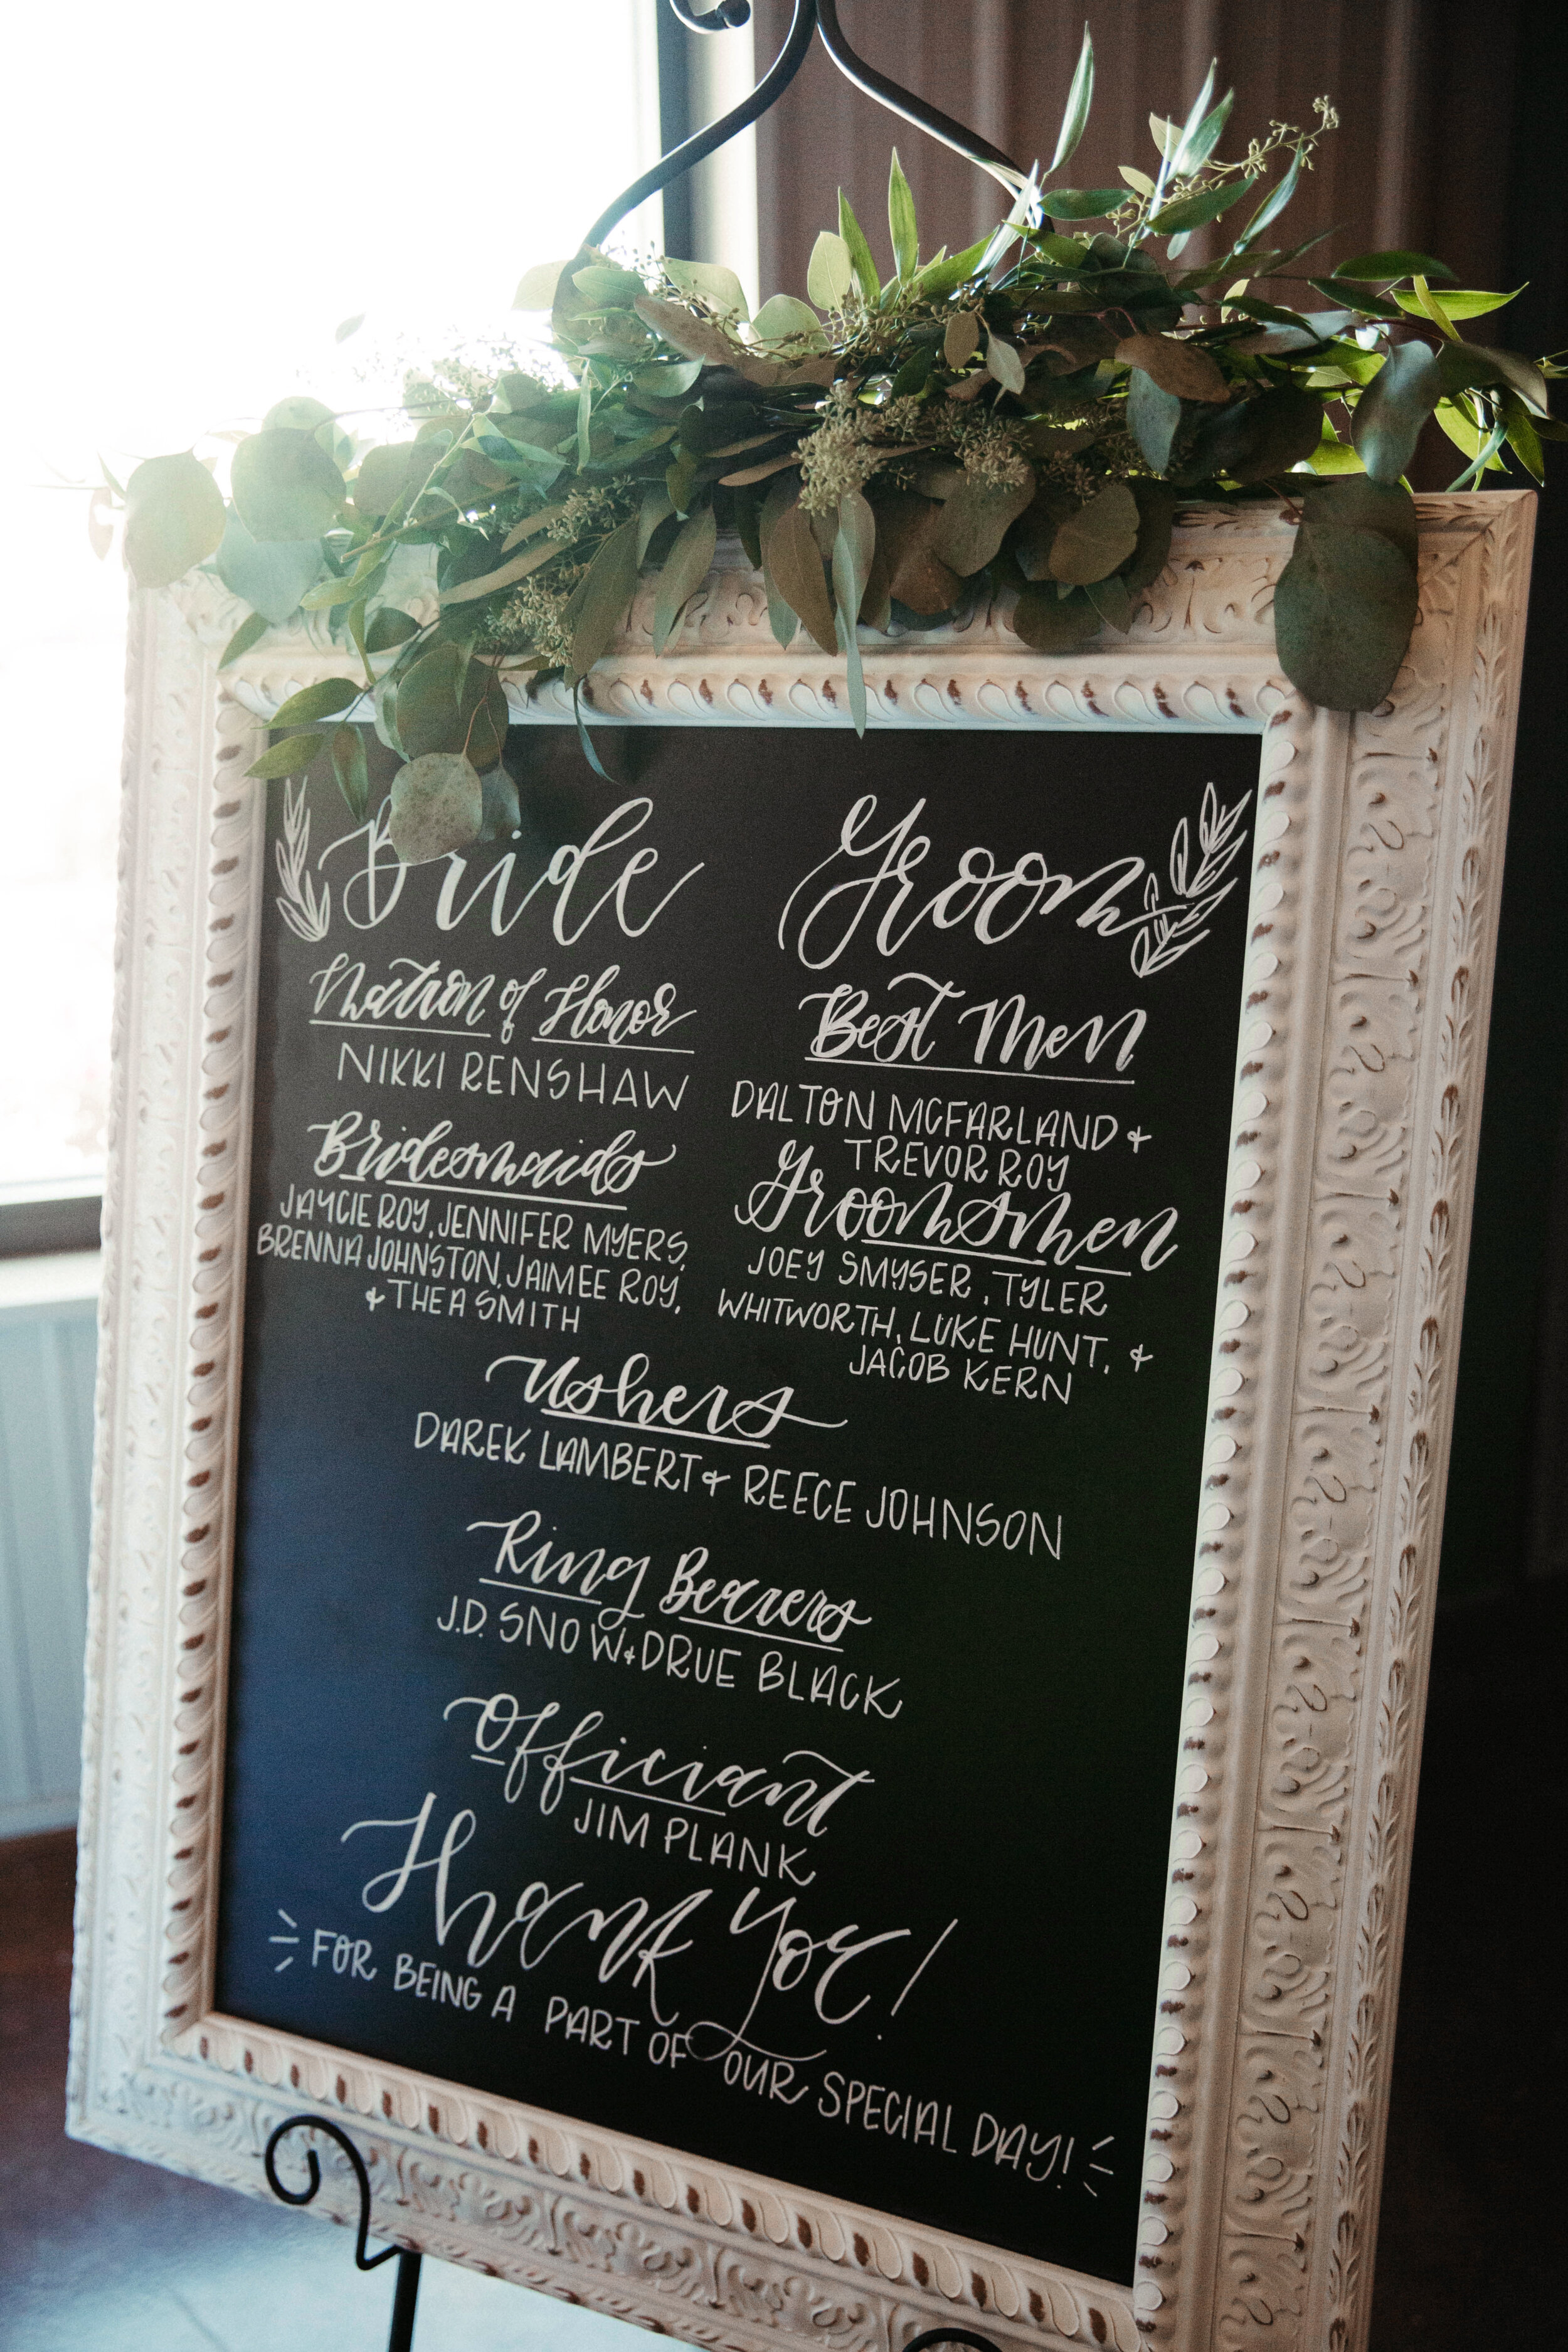 Bride
Matron of Honor
NIKKI RENSHAW
Bridesmaids
JAYCIE ROY, JENNIFER MYERS,
BRENNA JOHNSTON, JAIMEE ROY,
& THEA SMITH
Groom
Best Men
DALTON MCFARLAND &
TREVOR ROY
Groomsmen
JOEY SMYSER, TYLER
WHITWORTH, LUKE HUNT, &
JACOB KERN
Ushers
DAREK LAMBERT & REECE JOHNSON
Ring Bearers
J.D. SNOW & DRUE BLACK
Officiant
JIM PLANK
Thank You!
FOR BEING A PART OF OUR SPECIAL DAY!